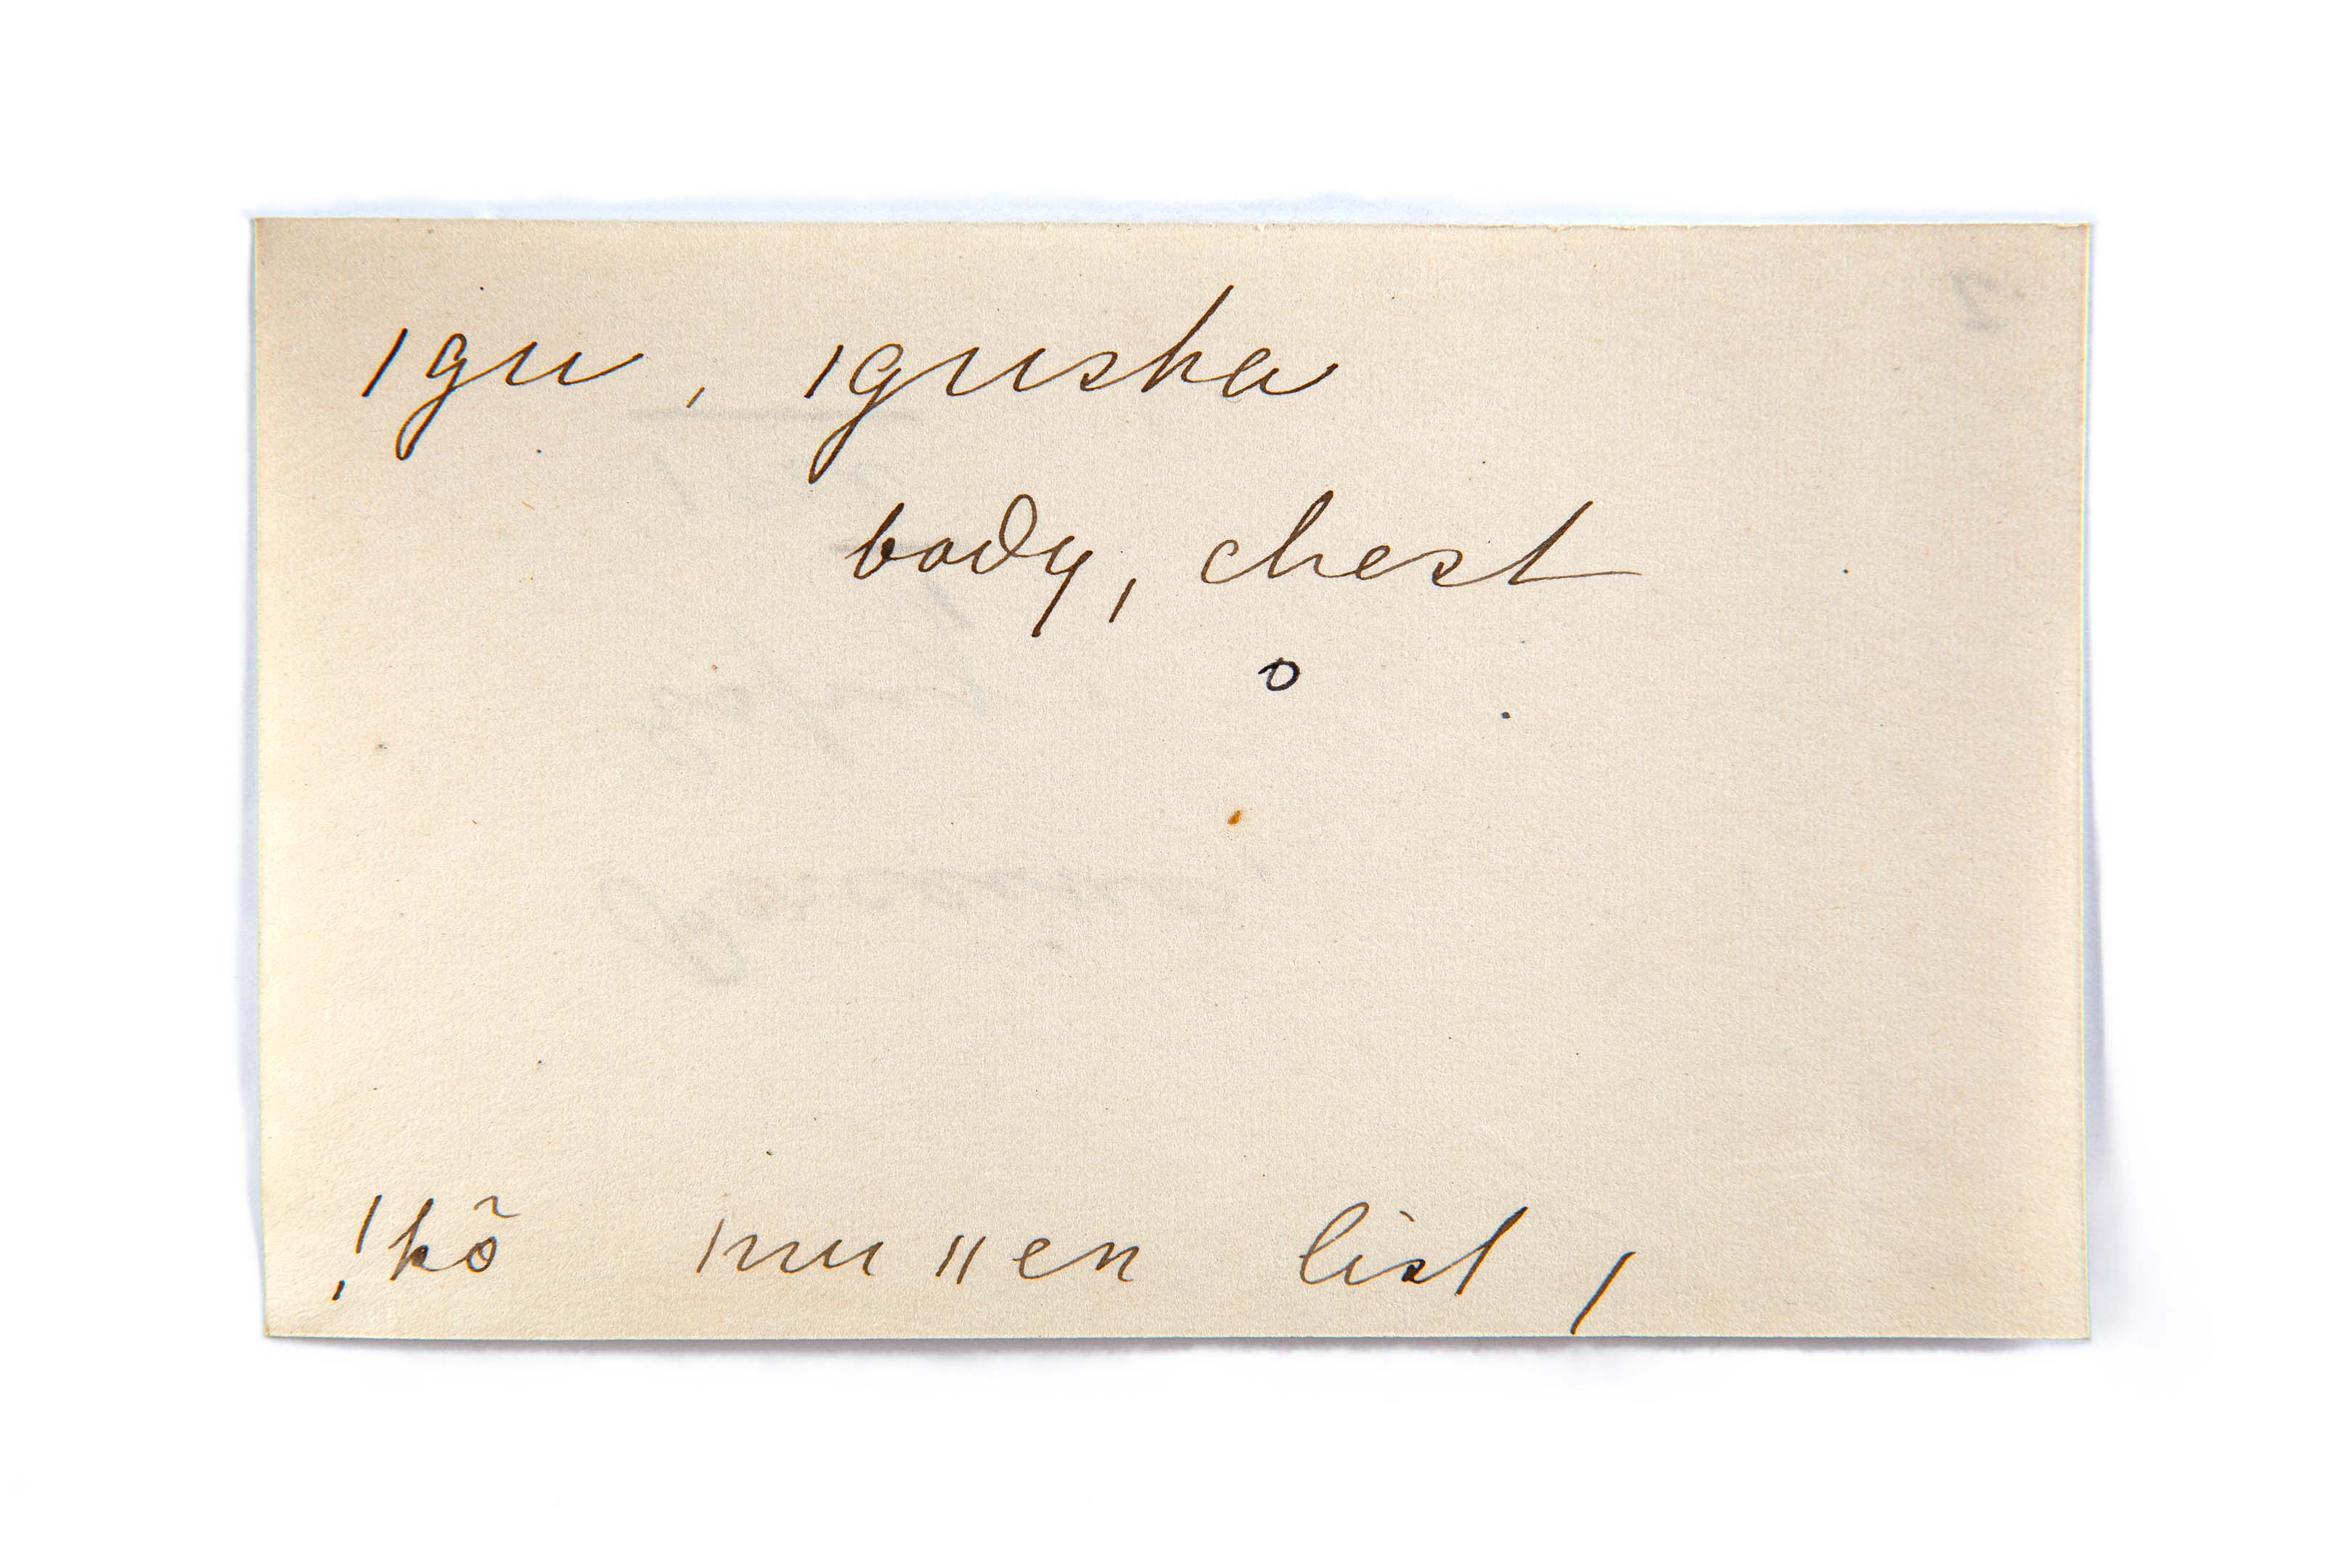 ǀgu, ǀguska
body, chest
o
!kõ ǀnu ǁen list,